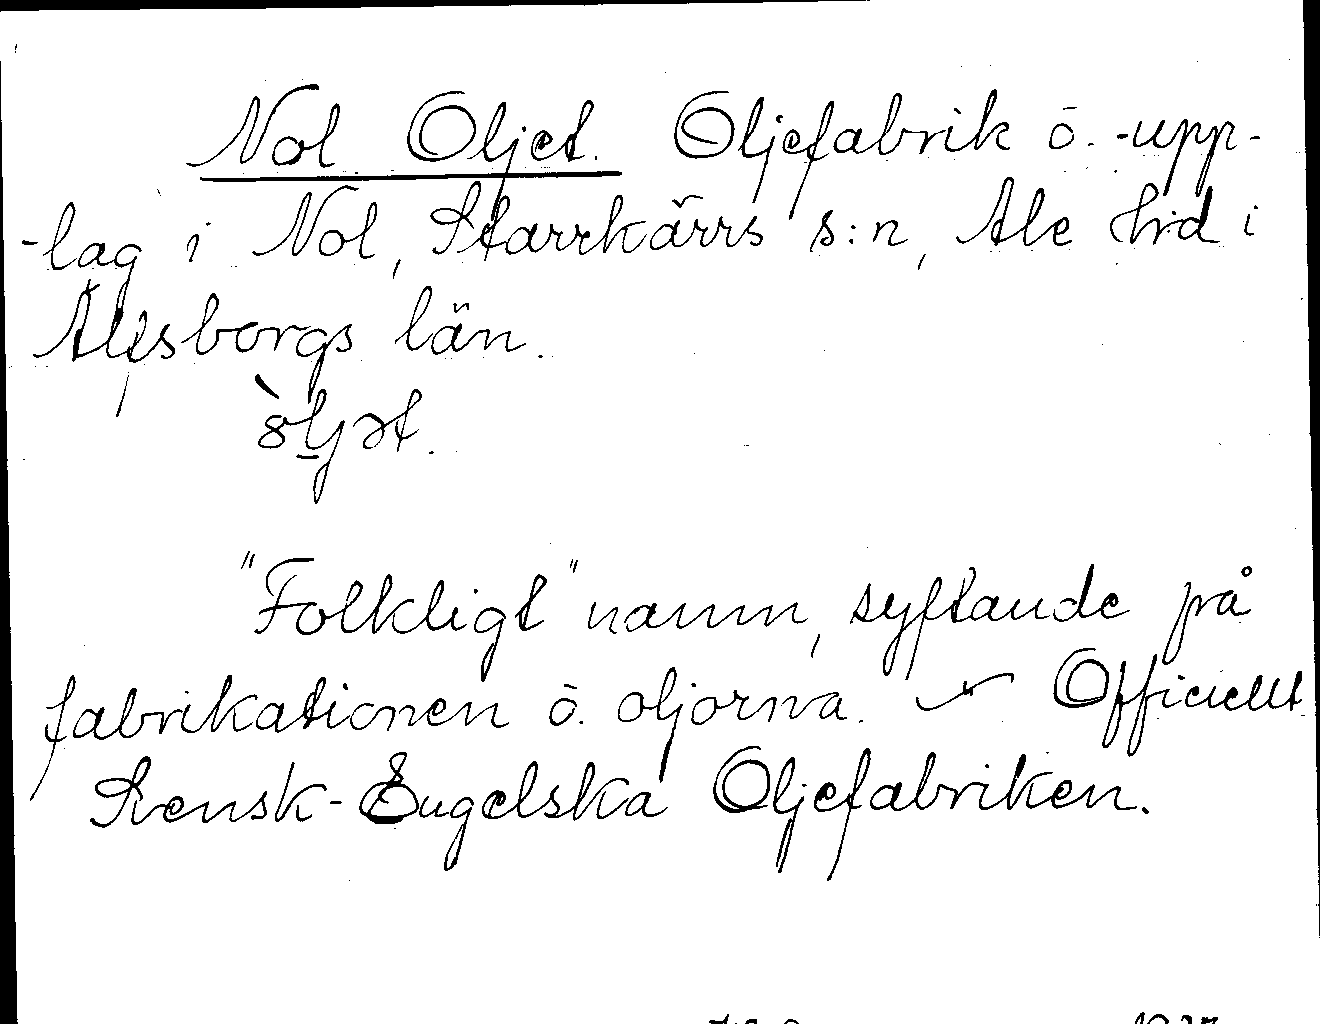 Nol Oljet. Oljefabrik o. -upp-
-lag i Nol, Starrkärrs s:n, Ale hrd i
Älvsborgs län.
"Folkligt" namn, syftande på
fabrikationen o. oljorna. Officiellt
Svensk-Engelska Oljefabriken.